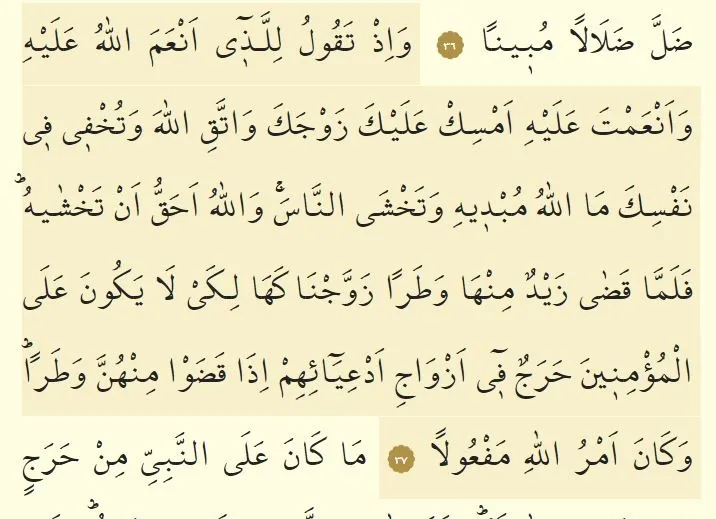 ضَلَّ ضَلَالًا مُب۪ينًا ٣٦ وَاِذْ تَقُولُ لِلَّـذ۪ٓي اَنْعَمَ اللّٰهُ عَلَيْهِ
وَاَنْعَمْتَ عَلَيْهِ اَمْسِكْ عَلَيْكَ زَوْجَكَ وَاتَّقِ اللّٰهَ وَتُخْف۪ي ف۪ي
نَفْسِكَ مَا اللّٰهُ مُبْد۪يهِ وَتَخْشَى النَّاسَۚ وَاللّٰهُ اَحَقُّ اَنْ تَخْشٰيهُۜ
فَلَمَّا قَضٰى زَيْدٌ مِنْهَا وَطَرًا زَوَّجْنَا كَهَا لِكَيْ لَا يَكُونَ عَلَى
الْمُؤْمِن۪ينَ حَرَجٌ ف۪ٓي اَزْوَاجِ اَدْعِيَٓائِهِمْ اِذَا قَضَوْا مِنْهُنَّ وَطَرًاۜ
وَكَانَ اَمْرُ اللّٰهِ مَفْعُولًا ٣٧ مَا كَانَ عَلَى النَّبِيِّ مِنْ حَرَجٍ